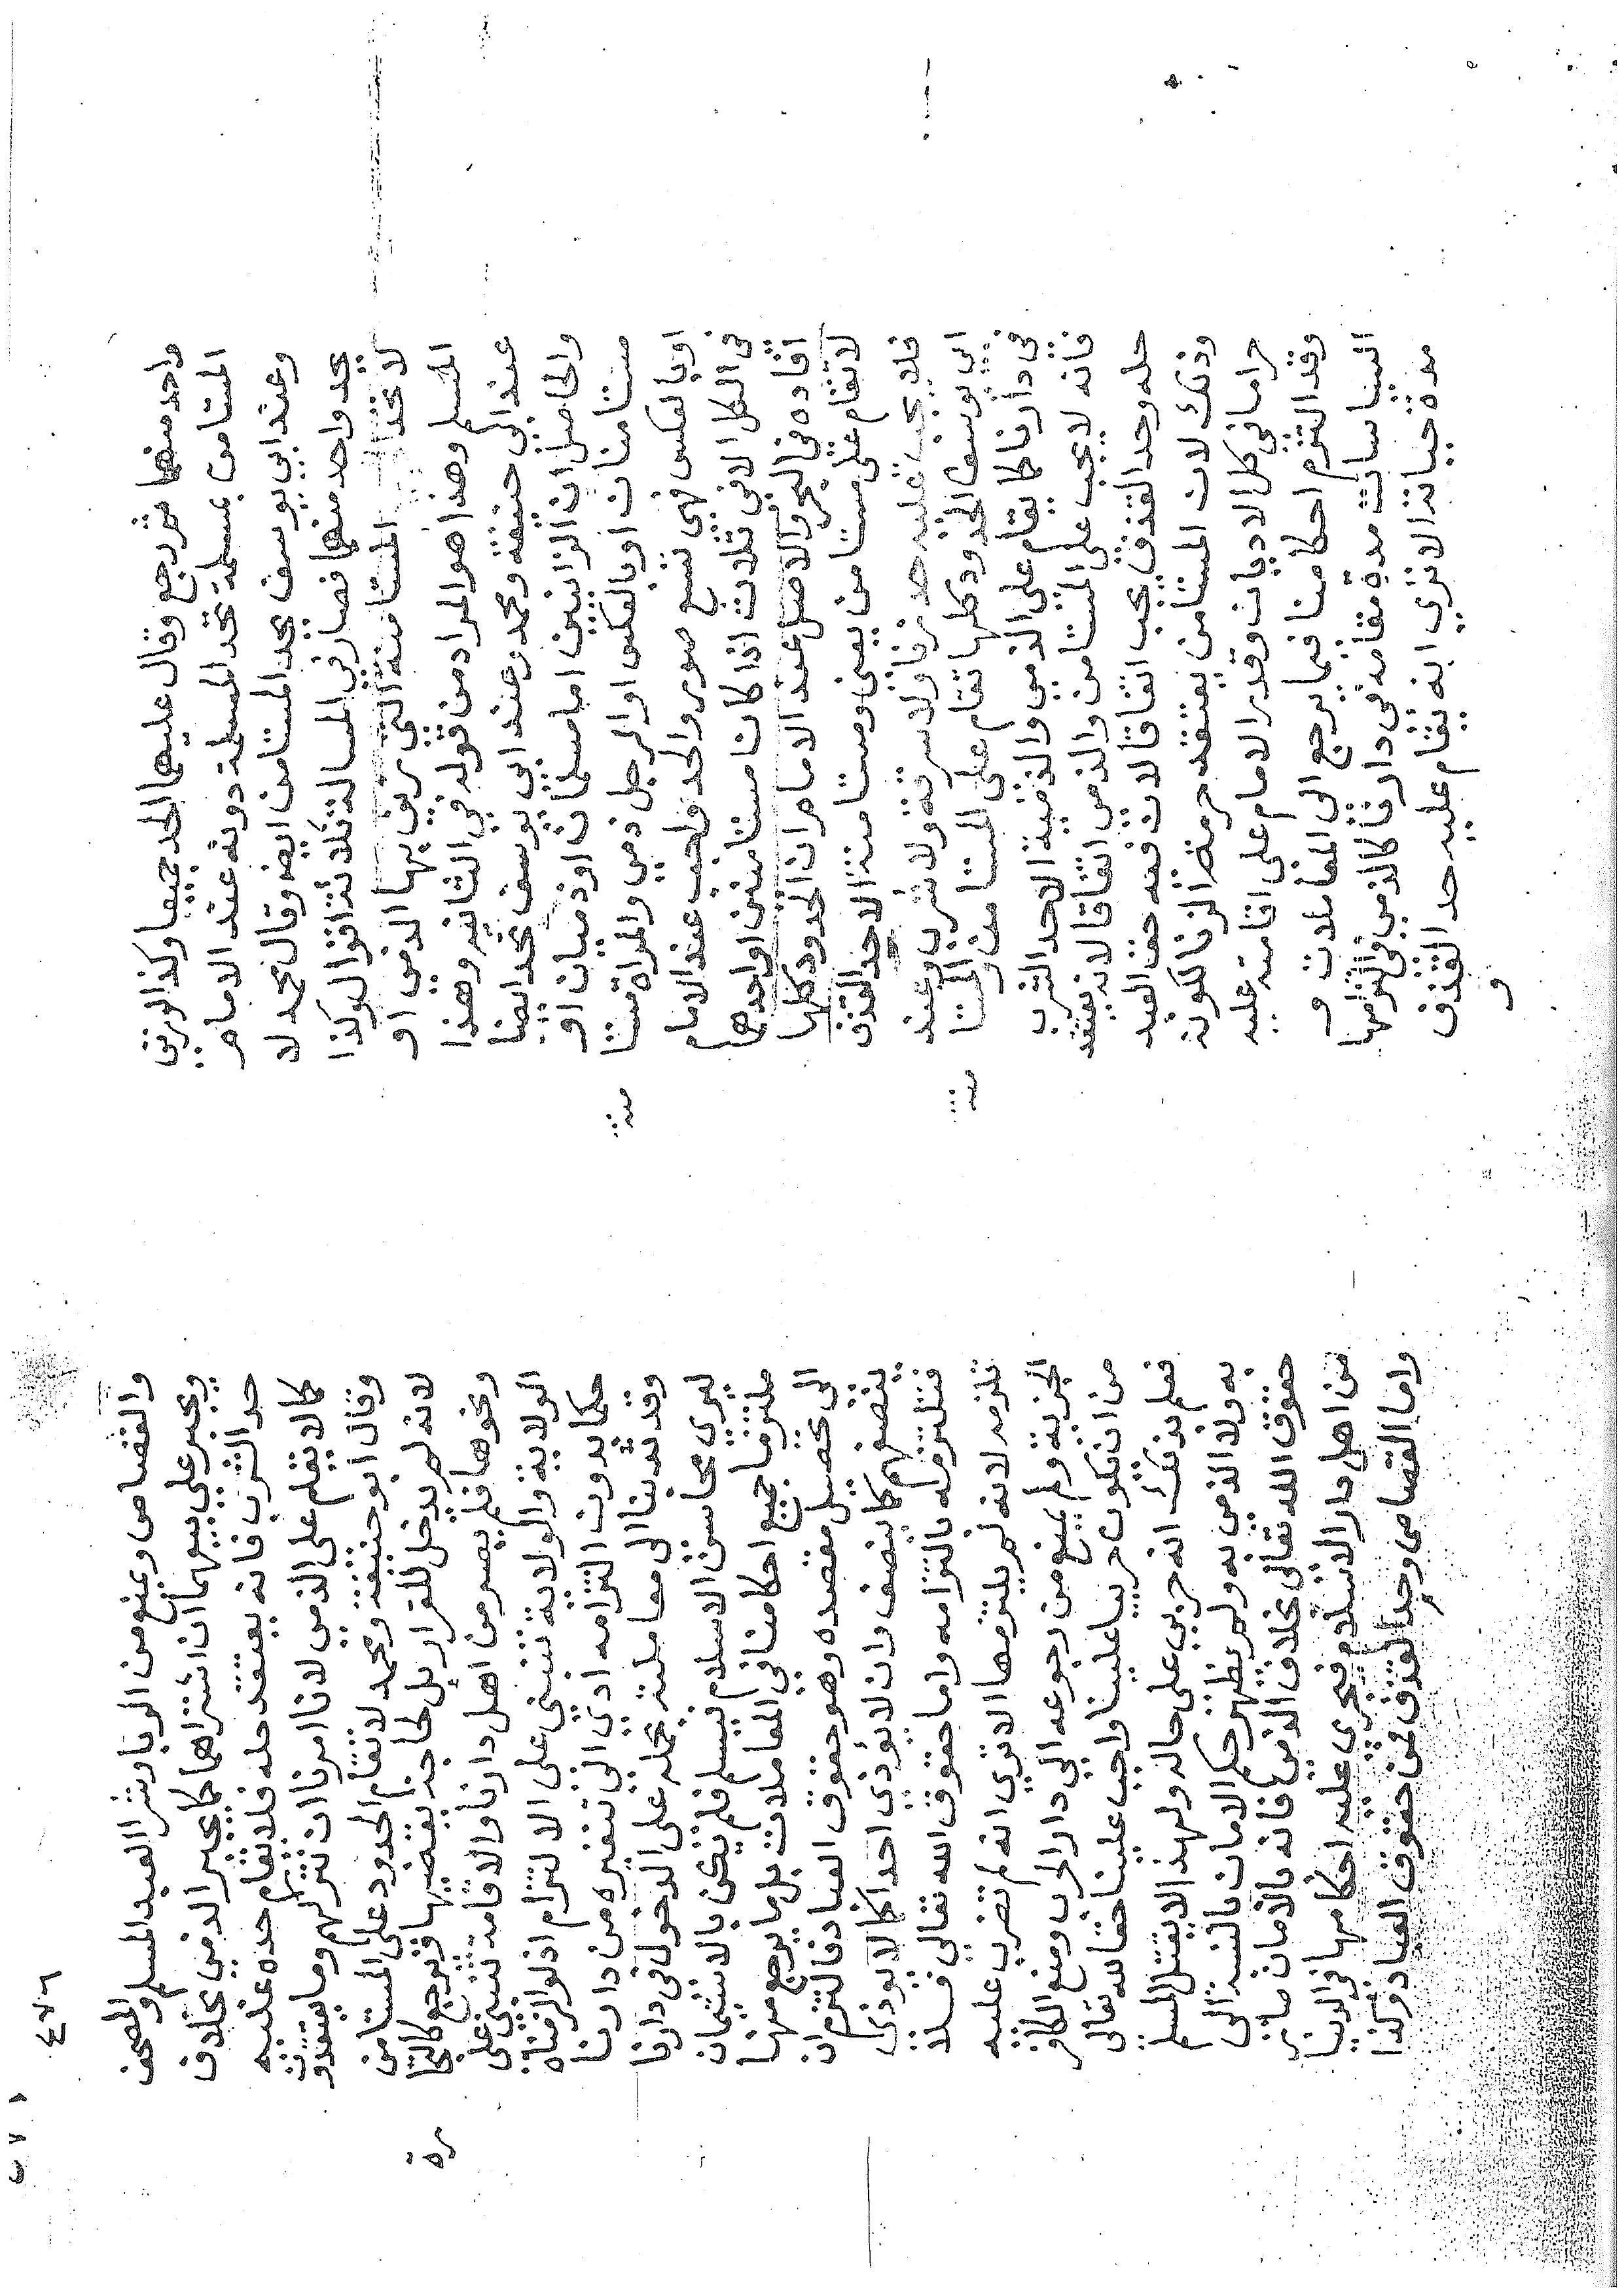 واحد منهما ثم رجع وقال عليهما الحد جميعا وكذا لو زنى
المستامن بمسلمة تحد المسلمة دونه عند الامام
وعند ابي يوسف يحد المستامن ايضا وقال محمد لا
يحد واحد منهما فصار في المسالة ثلاثة اقوال وكذا
لا تحد المستامنة التي زنى بها الذمي او
المسلم وهذا هو المراد من قوله في الثانية وهذا
عند ابي حنيفة ومحمد وعند ابي يوسف تحد ايضا
والحاصل ان الزانيين اما مسلمان او ذميان او
مستامنان او بالعكس او الرجل ذمي والمراة مستا
منة او بالعكس فهي تسع صور والحد واجب عند الامام
في الكل الا في ثلاث اذا كانا مستامنين او احدهما
افاده في البحر والاصل عند الامام ان الحدود كلها
لا تقام على مستامن يعني ومستامنة الا حد القذف
فلا يجب عليه حد زنا ولا سرقة ولا شرب وعند
ابي يوسف الحدود كلها تقام على المستامن والمستا
منة في دارنا كما يقام على الذمي والذمية الا حد الشرب
فانه لا يجب على المستامن والذمي اتفاقا لانه يعتقد
حله وحد القذف يجب اتفاقا لان فيه حق العبد
وذلك لان المستامن يعتقد حرمة الزنا لكونه
حراما في كل الاديان وقدر الامام على اقامته عليه
وقد التزم احكامنا فيما يرجع الى المعاملات و
السياسات مدة مقامه في دارنا كالذمي في التزامها
مدة حياته الا ترى انه يقام عليه حد القذف
و
٤٧٦
والقصاص ويمنع من الربا وشراء العبد المسلم والمصحف
ويجبر على بيعهما ان اشتراهما كما يجبر الذمي بخلاف
حد الشرب فانه يعتقد حله فلا تقام حده عليه
كما لا يقام على الذمي لانا امرنا ان نتركهم وما يعتقدون
وقال ابو حنيفة ومحمد لا تقام الحدود على المستامن
لانه لم يدخل للقرار بل لحاجة يقضيها ويرجع كالتجا
رة ونحوها فلم يصر من اهل دارنا والاقامة تبتني على
الولاية والولاية تبتني على الالتزام اذ لو الزمناه
حكما بدون التزامه ادى الى تنفيره من دارنا
وقد ندبنا الى معاملة تحمله على الدخول في دارنا
ليرى محاسن الاسلام فيسلم فلم يكن بالاستيمان
ملتزما جميع احكامنا في المعاملات بل ما يرجع منها
الى تحصيل مقصده وهو حقوق العباد فالتزم ان
ينصفهم كما ينصف وان لا يؤذي احدا كما لا يؤذى
فيلتزمه بالتزامه واما حقوق الله تعالى فلا
تلزمه لانه لم يلتزمها الا ترى انه لم تضرب عليه
الجزية ولم يمنع من رجوعه الى دار الحرب ومنع الكافر
من ان يكون حربيا علينا واجب علينا حقا لله تعالى
فعلم بذلك انه حربي على حاله ولهذا لا يقتل المسلم
به ولا الذمي به ولم يظهر حكم الامان بالنسبة الى
حقوق الله تعالى بخلاف الذمي فانه بالامان صار
من اهل دار الاسلام فتجري عليه احكامها في الدنيا
واما القصاص وحد القذف فمن حقوق العباد وكذا